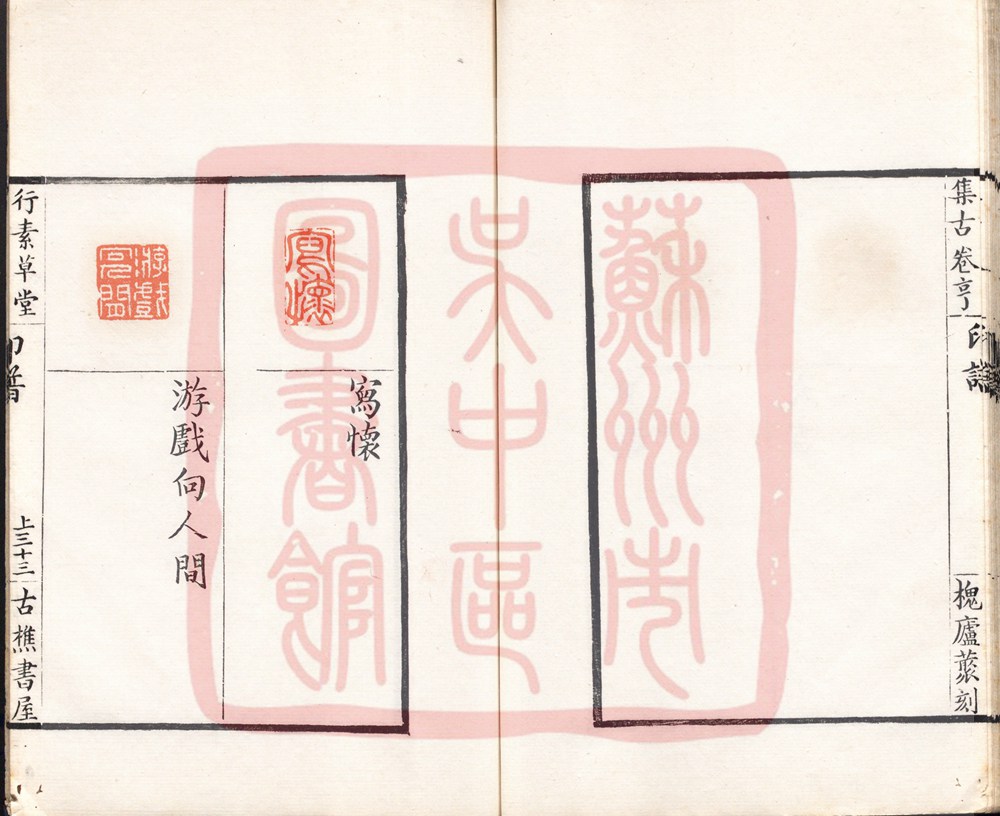 集古卷亨
印譜
槐廬藂刻
蘇州市
吳中區
圖書館
寫懷
寫懷
游戲向人間
行素草堂
印譜
上三十三
古樵書屋